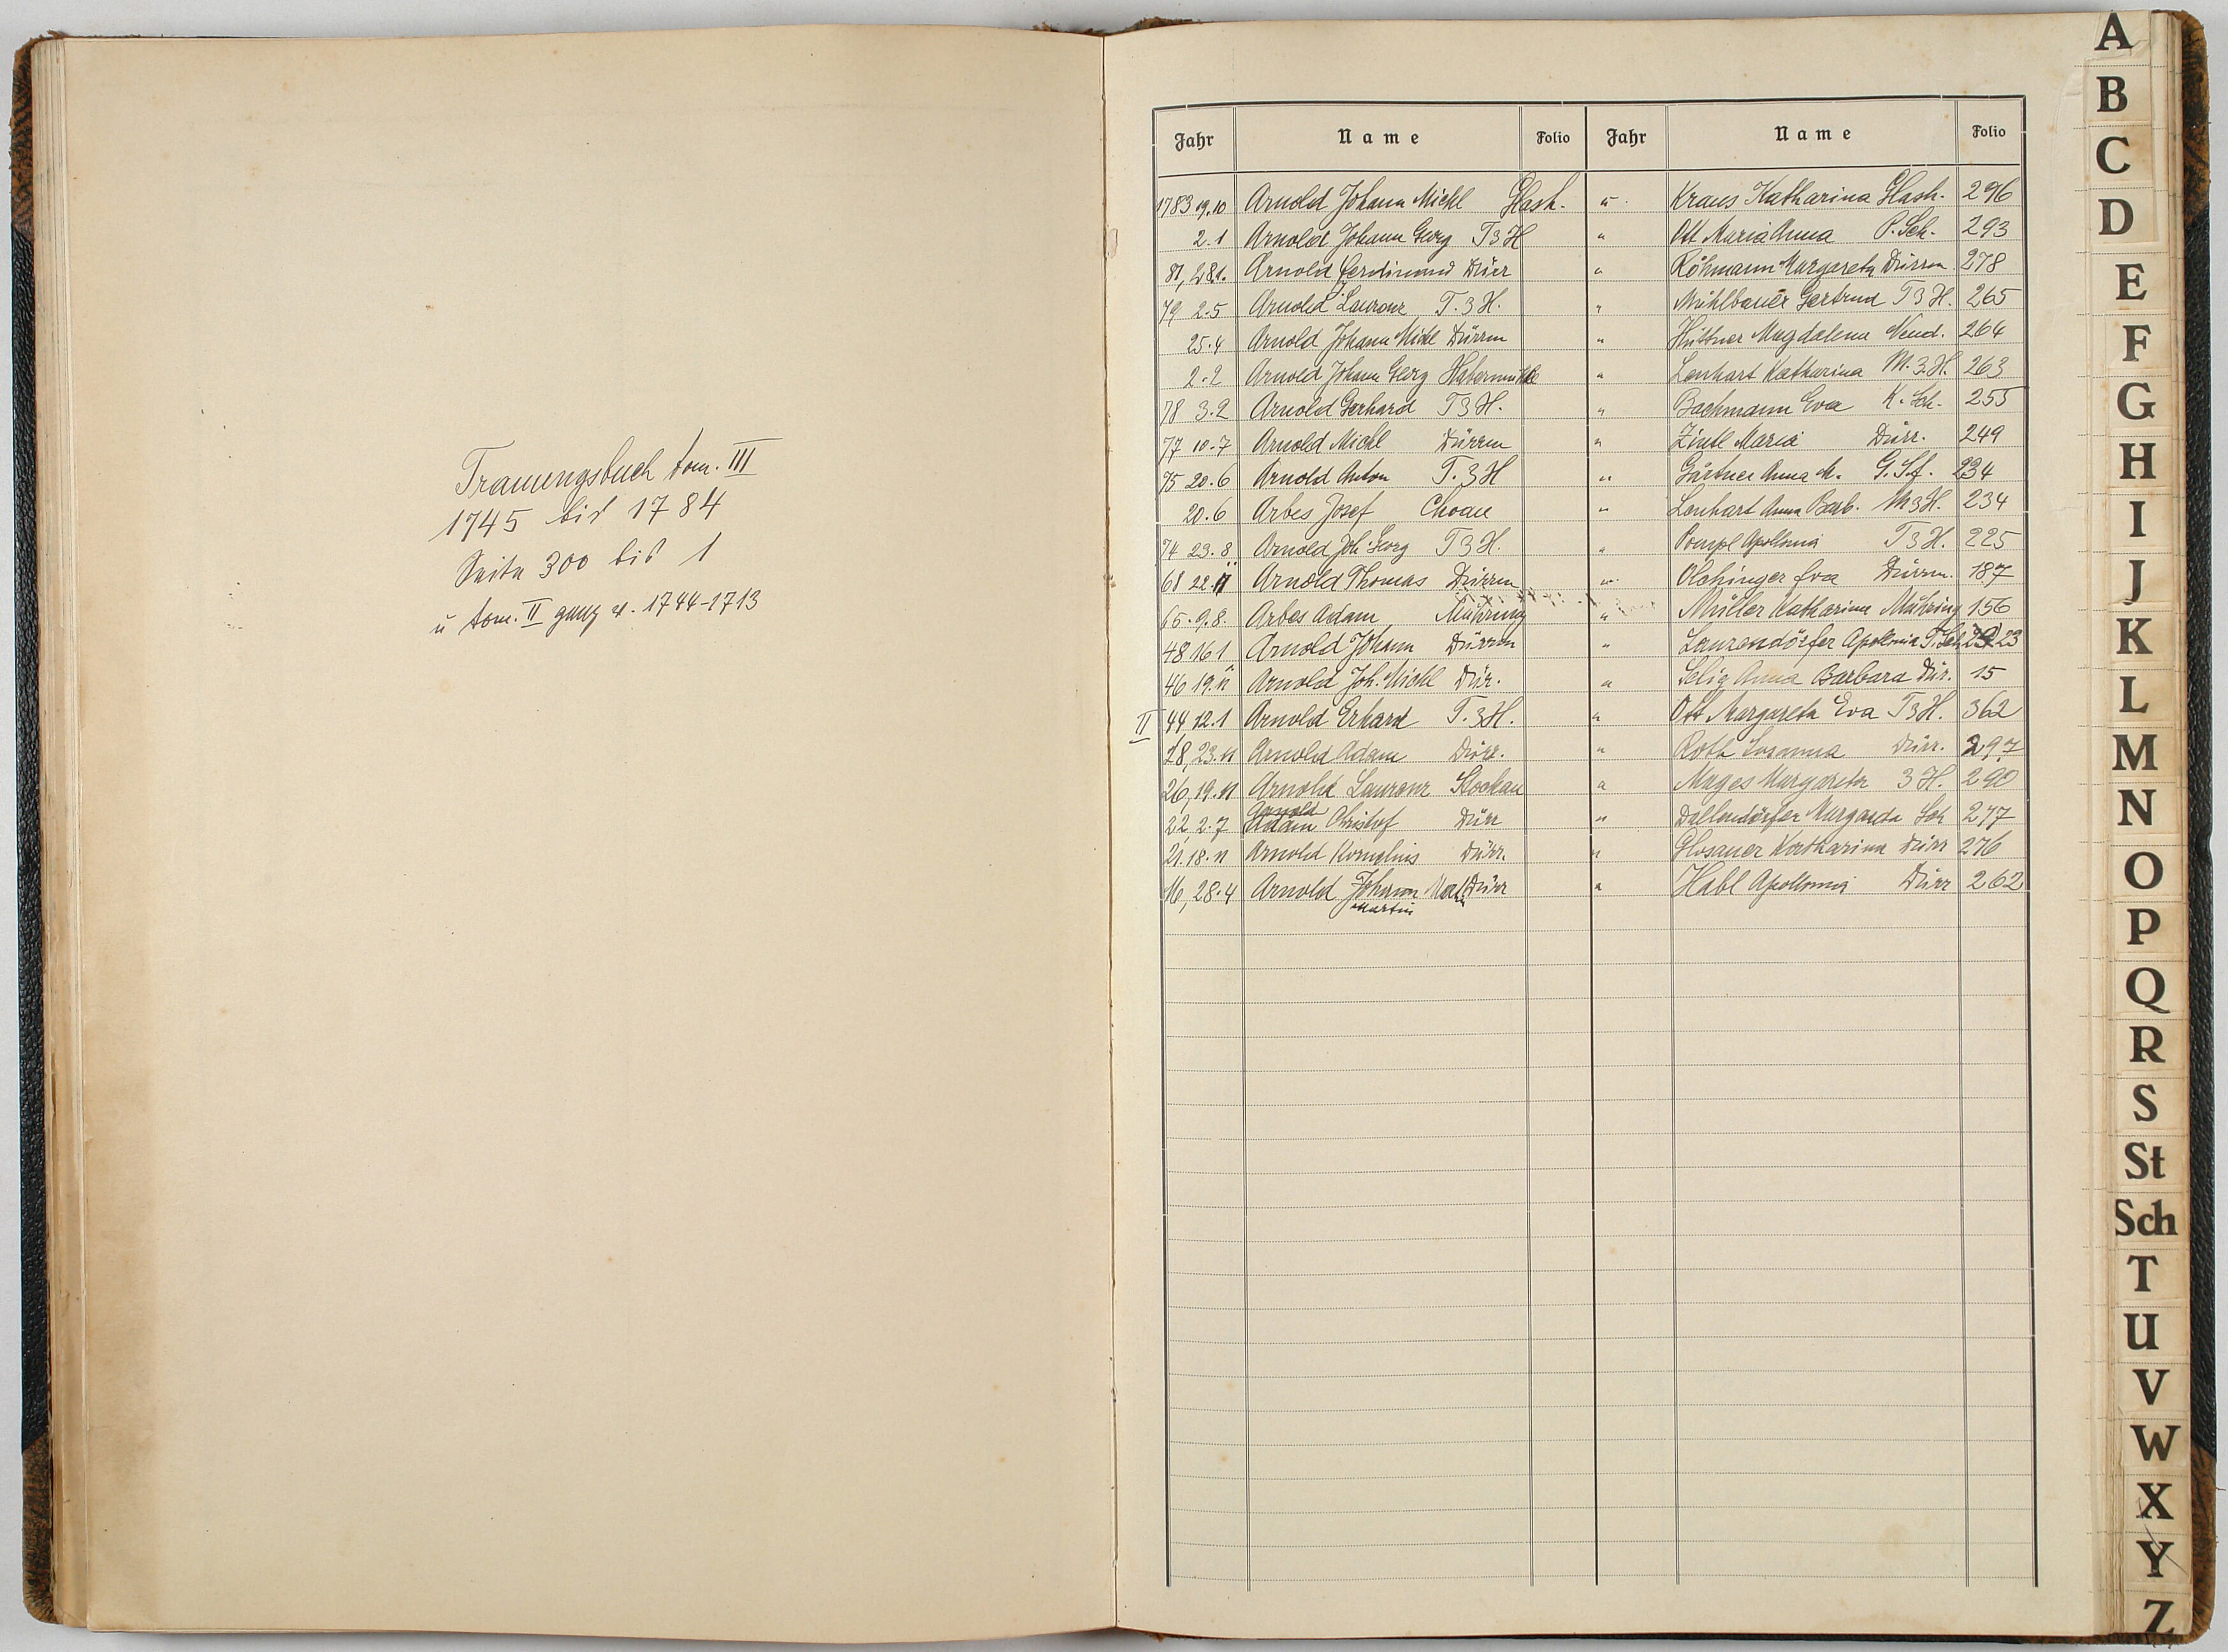 Trauungsbuch tom. III
1745 bis 1784
Seite 300 bis 1
u tom. II ganz v. 1744-1713
Jahr Name Folio Jahr Name Folio
1783 19.10 Arnold Johann Michl Glash. u. Kraus Katharina Glash. 296
2.1 Arnold Johann Georg T3H " Ott Maria Anna P. Sch. 293
81, Arnold Ferdinand Dürr " Röhmann Margareta Dürrm 278
79 2.5 Arnold Laurenz T.3H. " Mühlbauer Gertrud T3H. 265
25.4 Arnold Johann Michl Dürrm " Hüttner Magdalena Neud. 264
2.2 Arnold Johann Georg Habermühle " Lenhart Katharina M.3.H. 263
78 3.2 Arnold Gerhard T3H. " Bachmann Eva K. Sch. 255
77 10.7 Arnold Michl Dürrm " Zintl Maria Dürr. 249
75 20.6 Arnold Anton T.3H " Gärtner Anna M. 234
20.6 Arbes Josef " Lenhart Anna Barb. M3H. 234
74 23.8 Arnold Joh. Georg T3H. " Apollonia T3H. 225
68 22.11 Arnold Thomas Dürrm u. Eva Dürrm. 187
65.9.8. Arbes Adam Mähring " Müller Katharina Mähring 156
48 16 1 Arnold Johann Dürrm " Laurendörfer Apollonia 23
46 19.11 Arnold Joh. Michl Dür. u Selig Anna Barbara Dür. 15
II 44 12.1 Arnold Erhard T.3H. u Ott Margareta Eva T3H. 362
28, 23.11 Arnold Adam Dürr. " Roth Susanna Dürr. 297
26, 19.11 Arnold Laurenz Stockau u Mages Margareta 3H. 290
Arnold
22, 2.7 Adam Christof Dürr " Dallendörfer Margareta Sch 277
21.18.11 Arnold Kornelius Dürr. u Glosauer Katharina Dürr 276
16, 28.4 Arnold Johann Dürr u Habl Apollonia Dürr 262
Martin
A
B
C
D
E
F
G
H
I
J
K
L
M
N
O
P
Q
R
S
St
Sch
T
U
V
W
X
Y
Z